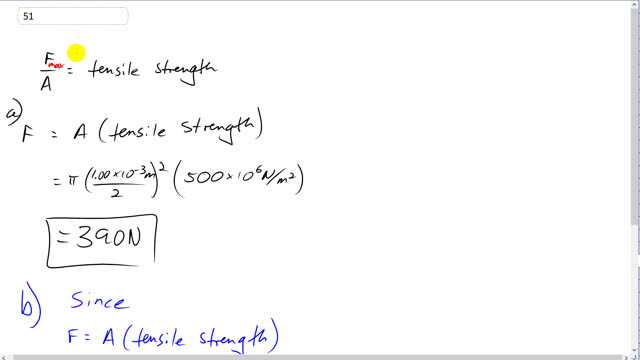 51
F_max/A = tensile strength
a)
F = A (tensile strength)
= π (1.00×10⁻³m/2)² (500×10⁶N/m²)
= 390N
b) Since
F = A (tensile strength)